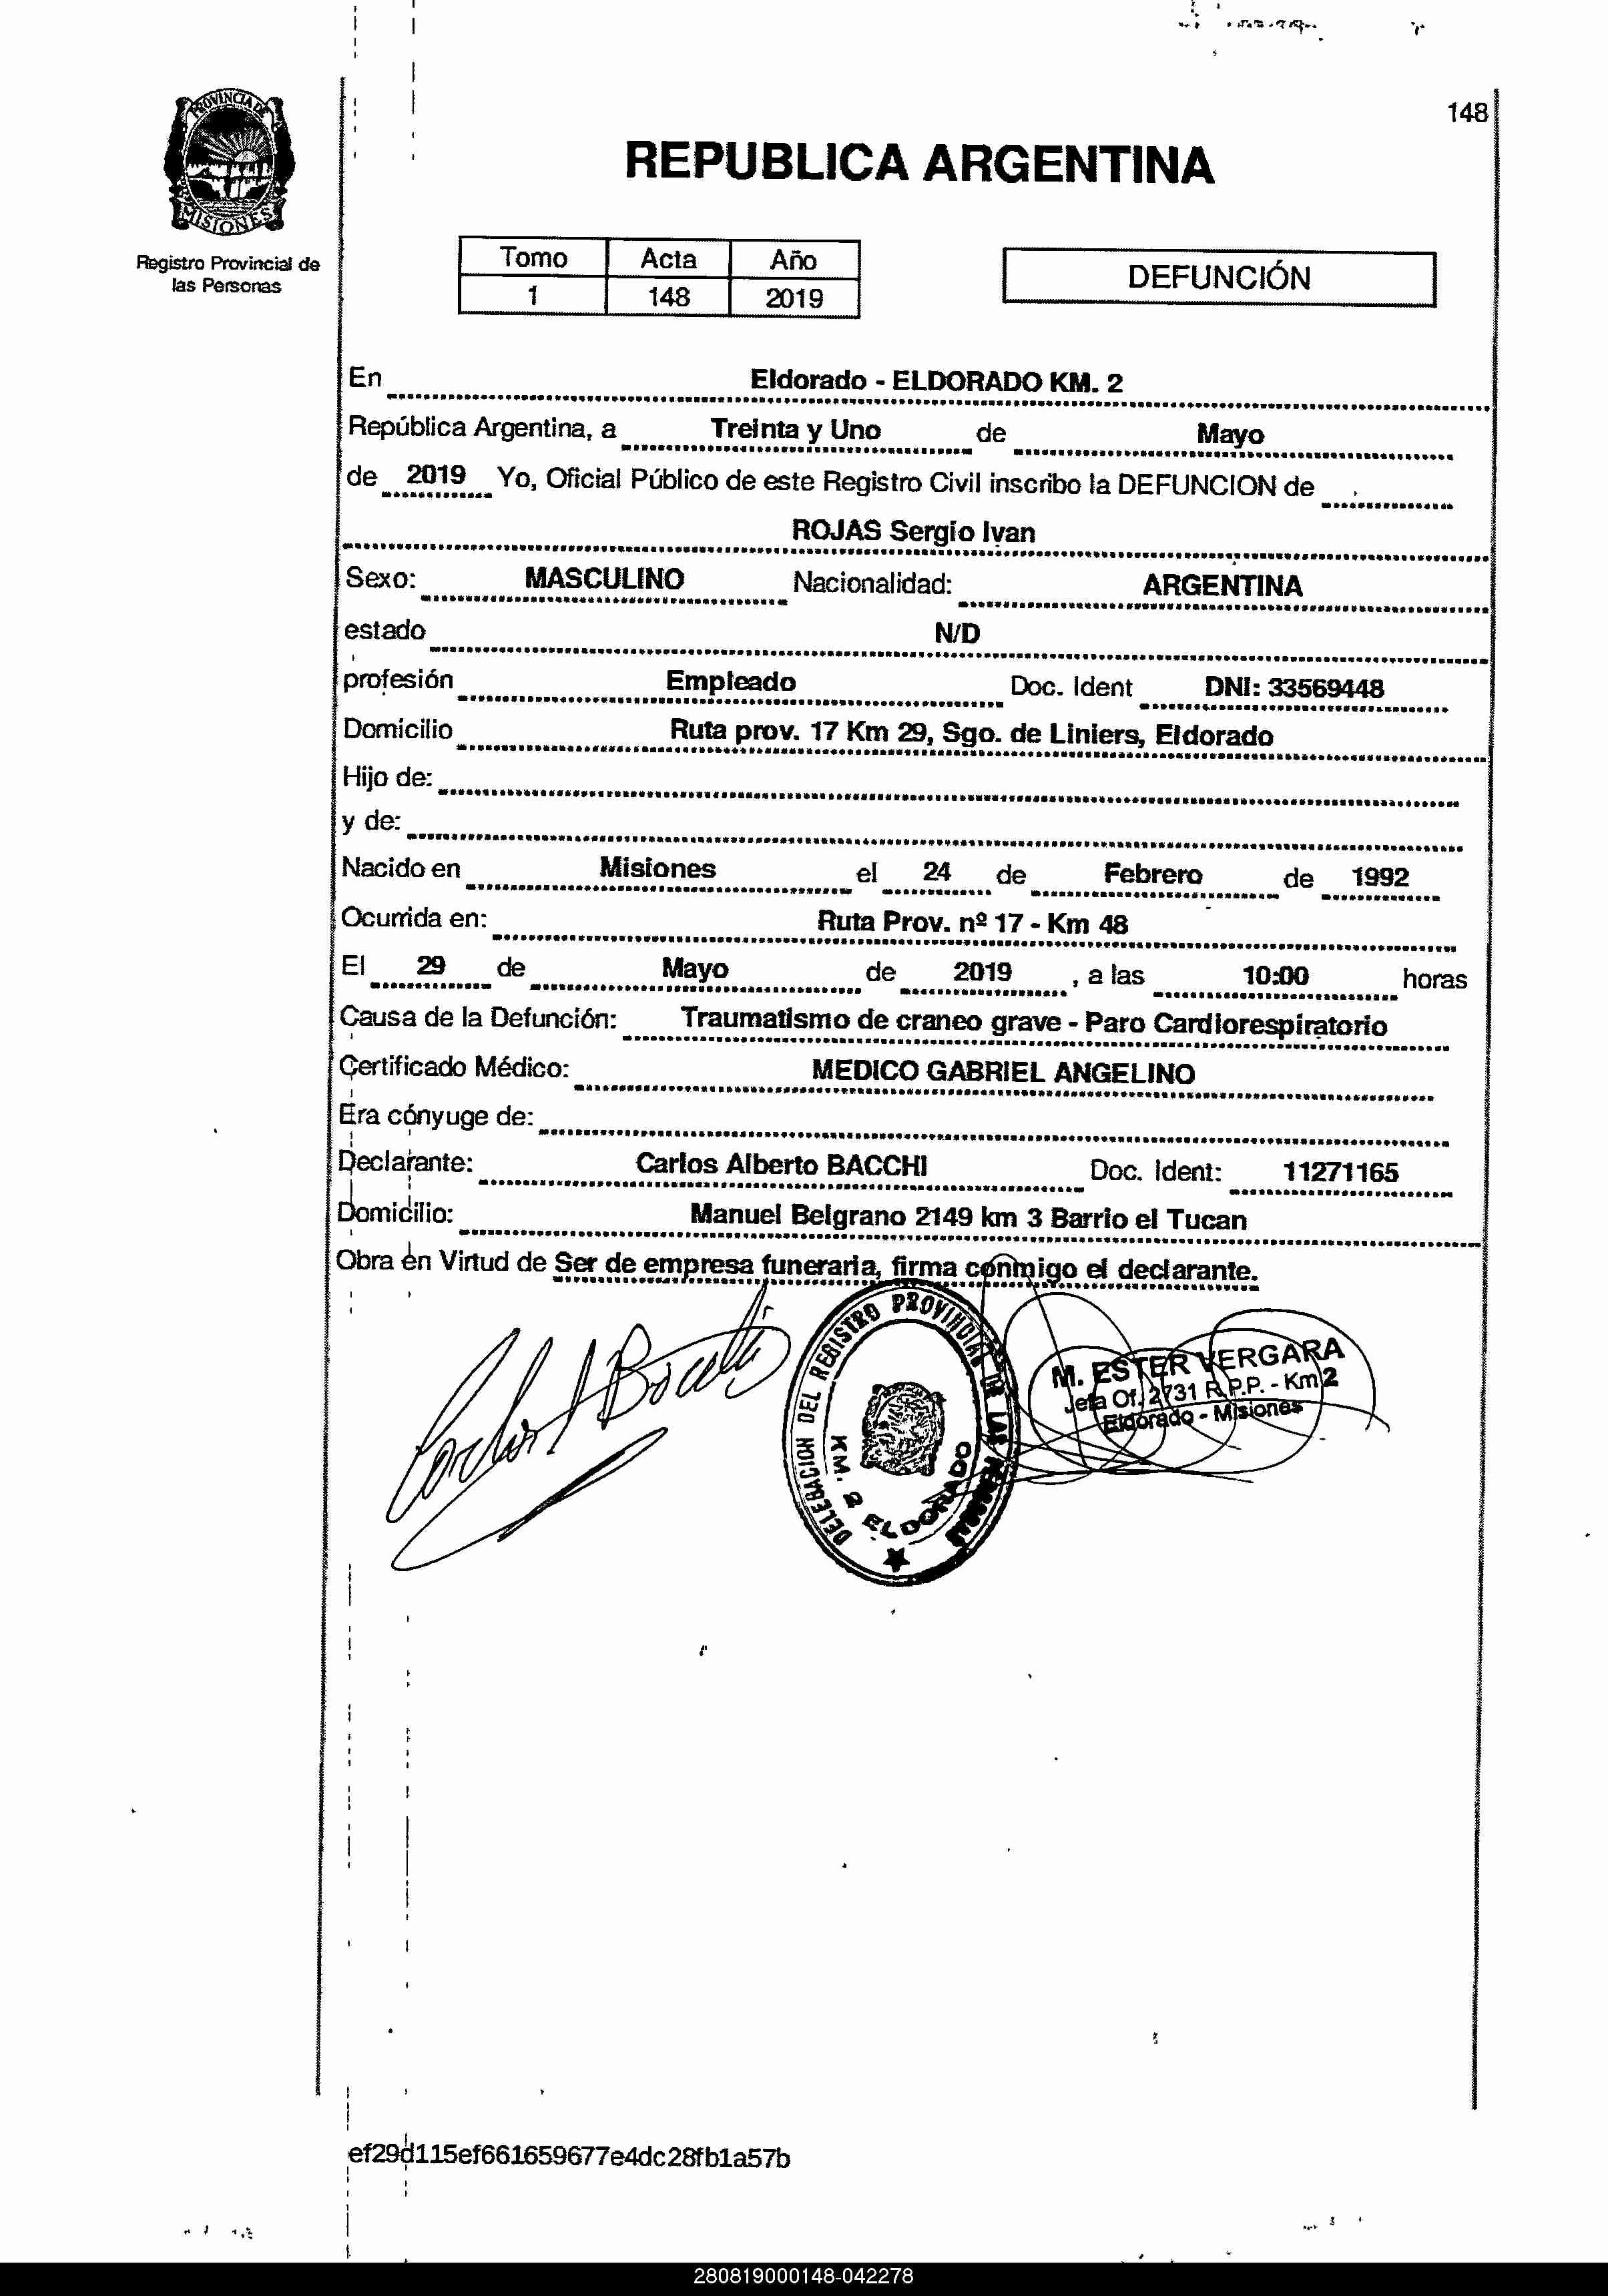 PROVINCIA DE
MISIONES
Registro Provincial de
las Personas
148
REPUBLICA ARGENTINA
Tomo Acta Año
1 148 2019
DEFUNCIÓN
En Eldorado - ELDORADO KM. 2
República Argentina, a Treinta y Uno de Mayo
de 2019 Yo, Oficial Público de este Registro Civil inscribo la DEFUNCION de
ROJAS Sergio Ivan
Sexo: MASCULINO Nacionalidad: ARGENTINA
estado N/D
profesión Empleado Doc. Ident DNI: 33569448
Domicilio Ruta prov. 17 Km 29, Sgo. de Liniers, Eldorado
Hijo de:
y de:
Nacido en Misiones el 24 de Febrero de 1992
Ocurrida en: Ruta Prov. nº 17 - Km 48
El 29 de Mayo de 2019 , a las 10:00 horas
Causa de la Defunción: Traumatismo de craneo grave - Paro Cardiorespiratorio
Certificado Médico: MEDICO GABRIEL ANGELINO
Era cónyuge de:
Declarante: Carlos Alberto BACCHI Doc. Ident: 11271165
Domicilio: Manuel Belgrano 2149 km 3 Barrio el Tucan
Obra en Virtud de Ser de empresa funeraria, firma conmigo el declarante.
Carlos A Bacchi
DELEGACION DEL REGISTRO PROVINCIAL DE LAS PERSONAS
KM. 2 ELDORADO
M. ESTER VERGARA
Jefa Of. 2731 R.P.P. - Km 2
Eldorado - Misiones
ef29d115ef661659677e4dc28fb1a57b
280819000148-042278